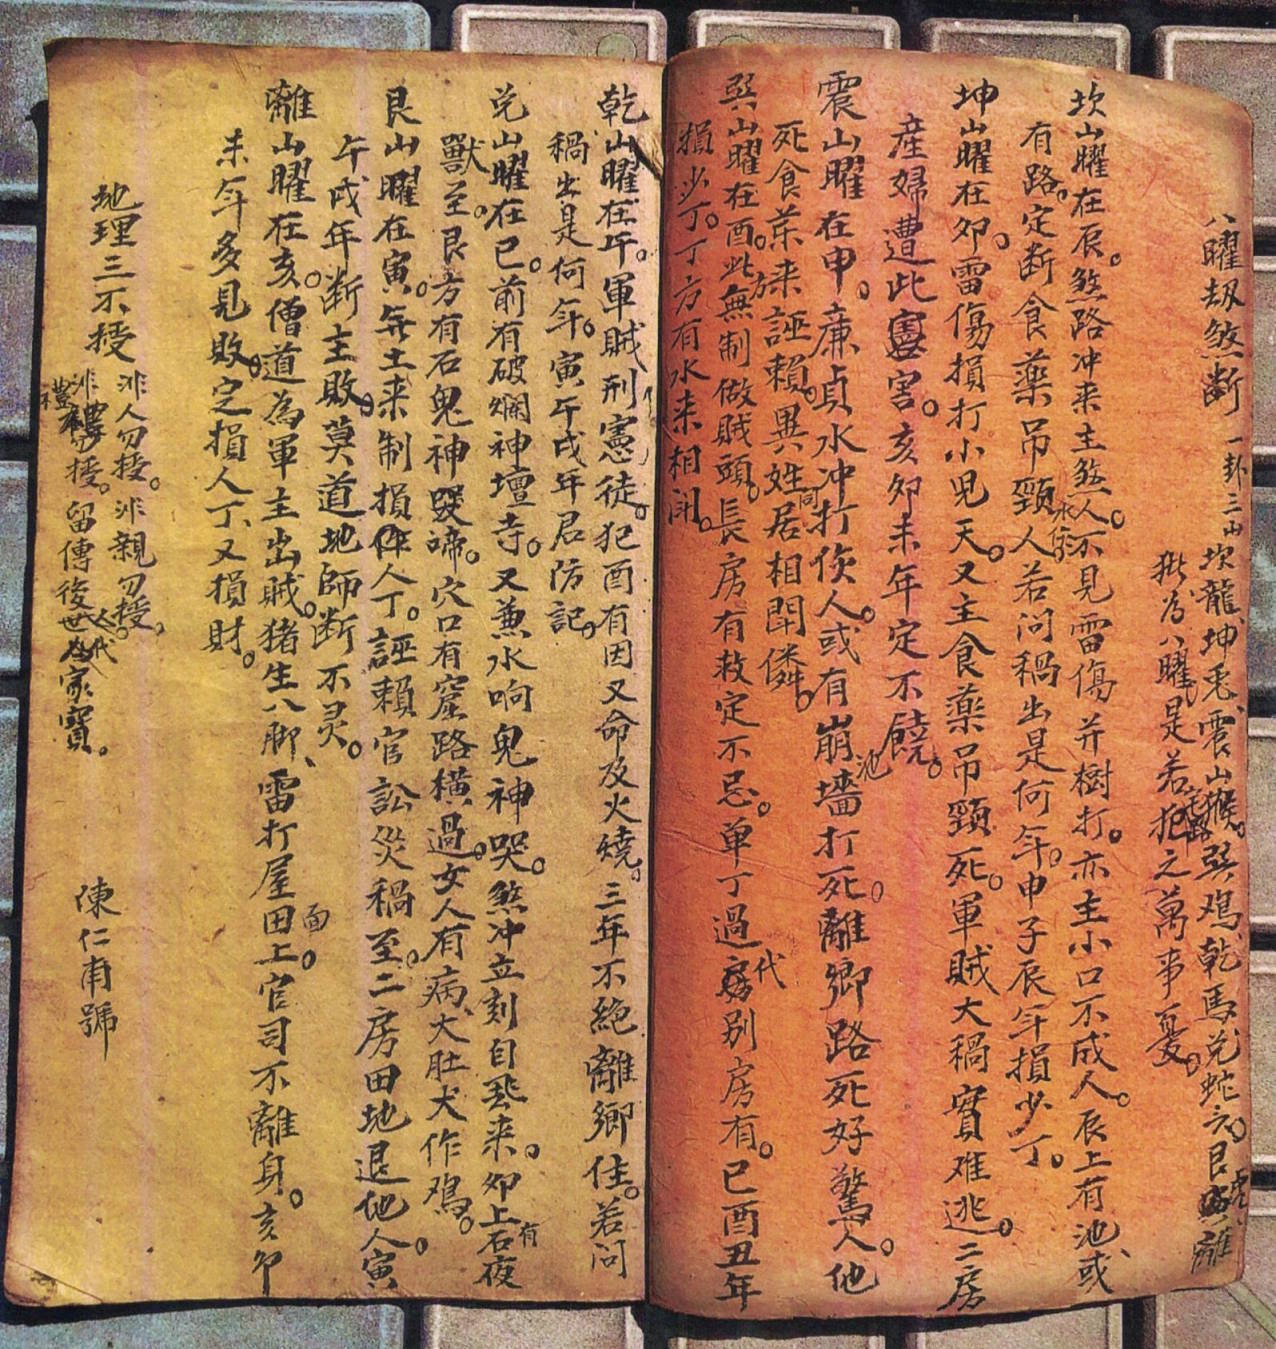 八曜刼煞断 一卦三山 坎龍坤兎、震山猴。巽鳮、乾馬兌蛇六。艮虎、離
猪为八曜、是若犯之萬事憂。
坎山曜在辰。煞路冲来主煞人。不見雷傷并樹打。亦主小口不成人。辰上有池、或
有路。定断食藥吊頸人若问禍出是何年。申子辰年損少丁。
坤山曜在卯。雷傷損打小児夭。又主食藥吊頸死。軍賊大禍實难逃。二房
產婦遭此害。亥卯未年定不饒。
震山曜在申。廉貞水冲打伤人。或有崩墻打死。離鄉路死好驚人。他
死食茶来誣賴。異姓同居相鬥憐。
巽山曜在酉。此方無制做賊頭。長房有救定不忌。单丁過代别房有。巳酉丑年
損少丁。丁方有水来相闲。
乾山曜在午。軍賊刑憲徒。犯酉有因又命及火燒。三年不絶離鄉住。若问
禍出是何年。寅午戌年君防記。
兌山曜在巳。前有破爛神壇寺。又兼水响鬼神哭。煞冲立刻自悲来。卯上有石夜
獸至。艮方有石鬼神哭啼。穴口有窟路橫過。女人有病、大肚犬作鳮。
艮山曜在寅。每土来制損人丁。誣賴官訟災禍至。二房田地退他人。寅
午戌年断主敗。莫道地師断不灵。
離山曜在亥。僧道為軍主出賊。猪生八脚、雷打屋田上。官司不離身。亥卯
未年多見敗。定損人丁又損財。
地理三不授 非人勿授。非親勿授。
非禮勿授。留傳後世為家寶。
陳仁甫號